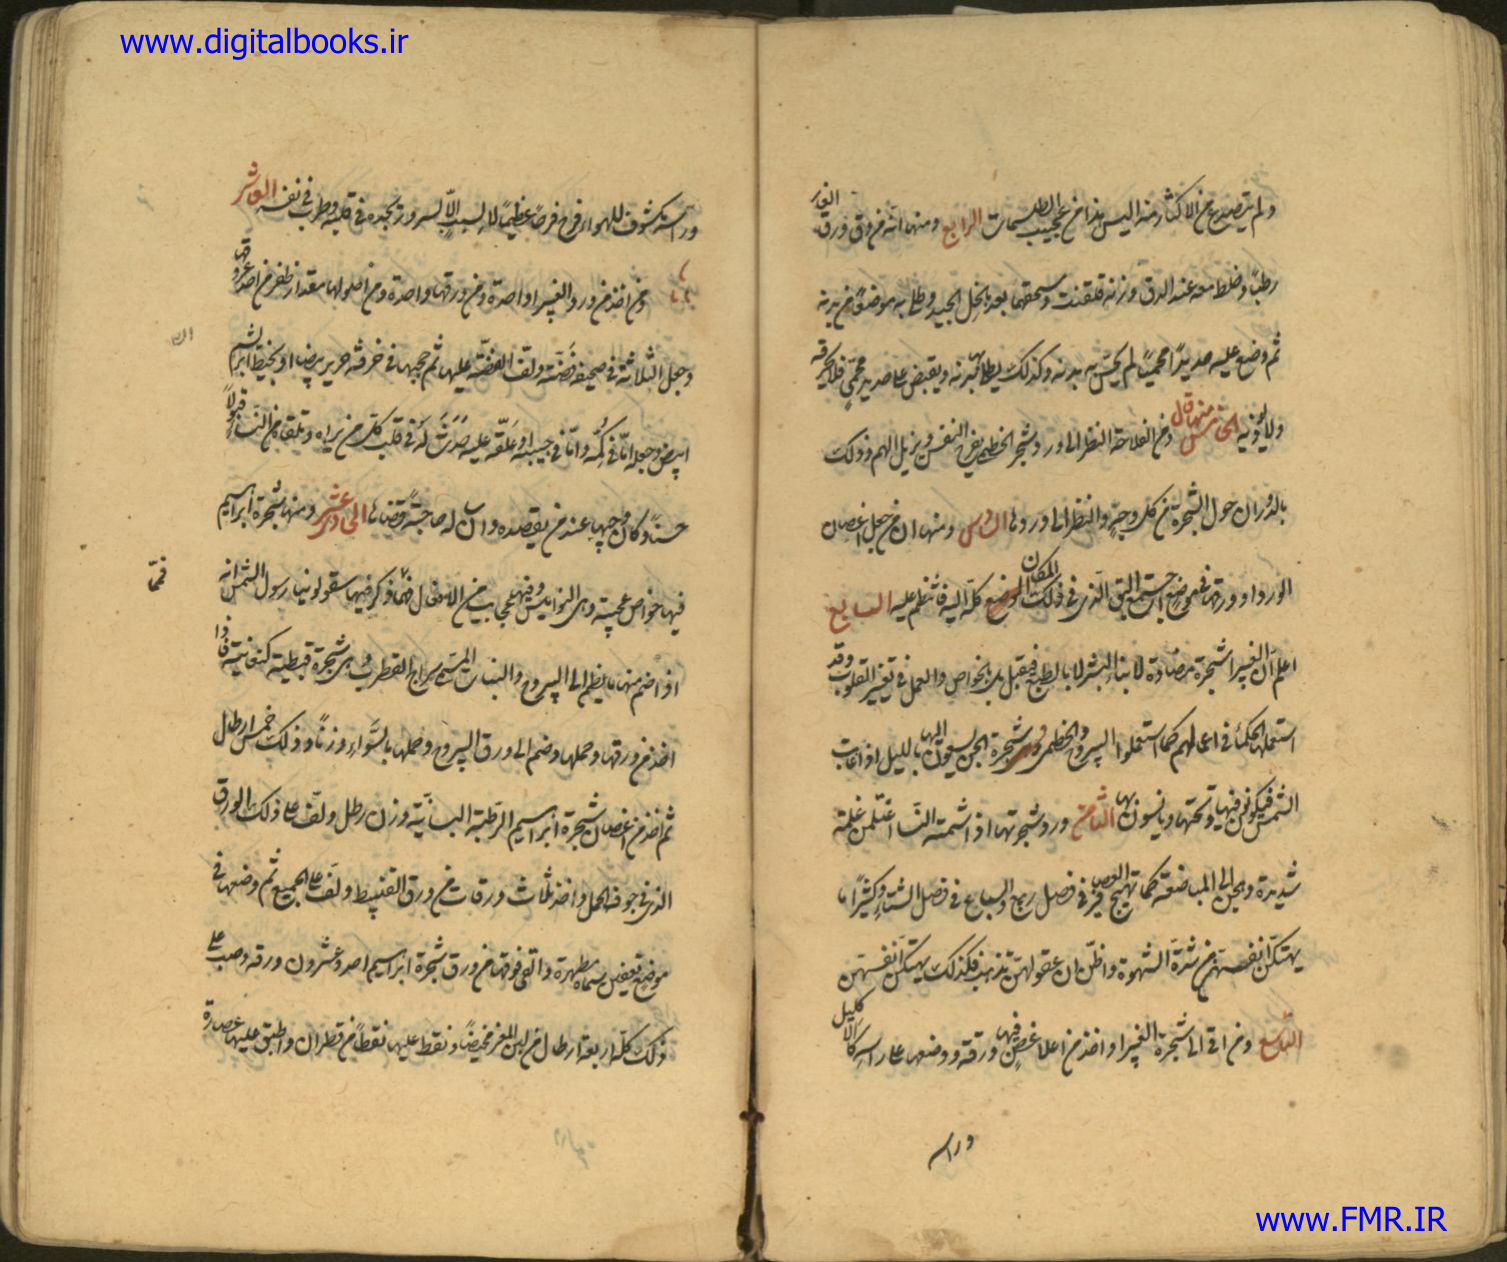 www.digitalbooks.ir
ولم يتصدع من الاكثار منه اليس هذا من عجيب الطلسمات الرابع ومنها انه من دق ورق الغبيرا
رطبًا وخلط معه عند الدق وزنه قلقنت وسحقهما بعد بالخل الجيد وطلا به موضعًا من بدنه
ثم وضع عليه حديدًا محميًا لم يحس به بدنه وكذلك يطلا بها بدنه ويقبض على حديد محمّى فلا يحرقه
ولا يؤذيه الخامس منها قال ومن الفلاحة النظر الى ورد وشجر الخطمى يفرح النفس ويزيل الهم وذلك
بالدوران حول الشجرة من كل وجه والنظر الى وردها السادس ومنها ان من جعل اغصان
الورد او ورقها فى موضع اجتمع البق الذى فى ذلك الموضع المكان كله اليه فاشتغلم عليه السابع
اعلم ان الغبيرا شجرة مضادة لابناء البشر لا بالطبع فيقبل بل بالخواص والعمل فى تغيير القلوب وقد
استعملها الحكماء فى اعمالهم كما استعملوا اليبروح والخطمى وهى شجرة الجن يسعون اليها بالليل اذا غابت
الشمس فيكونون فيها وتحتها ويانسون بها الثامن ورد شجرتها اذا شمته النساء اغتلمن غلمة
شديدة ويحن الى المباضعة كما تهيج الحمير فى فصل ربيع والسباع فى فصل الشتاء وكثيرًا ما
يهتكن انفسهن من شدة الشهوة واظن ان عقولهن تذهب فكذلك يهتكن انفسهن
التاسع ومن اتى الى شجرة الغبيرا واخذ من اعلا غصن فيها ورقة ووضعها على راسه كالاكليل
وراسه
وراسه مكشوف للهواء فرح فرحًا عظيمًا لا لسبب الا لسرور تجده فى قلبه وطرب فى نفسه العاشر
ومن اخذ من ورد الغبيرا واحدة ومن ورقها واحدة ومن اصولها مقدار ظفر من احد عروقها
وجعل الثلاثة فى صحيفة فضة ولف الفضة عليها ثم جعلها فى خرقة حرير بيضا او بخيط ابريسم
ابيض وجعله اما فى كمه واما فى جيبه او علقه عليه صدرت له فى قلب كل من يراه وتلقاه من الناس قبولاً
حسنًا وكان وجيها عند من يقصده وان سال حاجته قضيت له الحادى عشر ومنها شجرة ابراهيم
فيها خواص عجيبة وهى النوايس وفيها عجايب من الافعال فما ذكر فيها سقولونيا رسول الشمس انه
فمّا
اذا ضم منها ما يظلم الى اليبروح والنبات المسمى سراج القطرب وهى شجرة قبطية كنعانية فاذا
اخذ من ورقها وحملها وضم الى ورق اليبروح وحملها بالسواء وزنًا وذلك خمس ارطال
ثم اخذ من اغصان شجرة ابراهيم الرطبة النباتية وزن رطل ولف على ذلك الورق
الذى فى جوفه الحمل واخذ ثلاث ورقات من ورق القنبيط ولف على الجميع ثم وضعها فى
موضع تفيض سماه مطهرة والقى فوقها من ورق شجرة ابراهيم احد وعشرون ورقه وصب على
ذلك كله اربعة ارطال من لبن الماعز مخيضًا ونقط عليها نقطًا من قطران واطبق عليها عصارة
www.FMR.IR